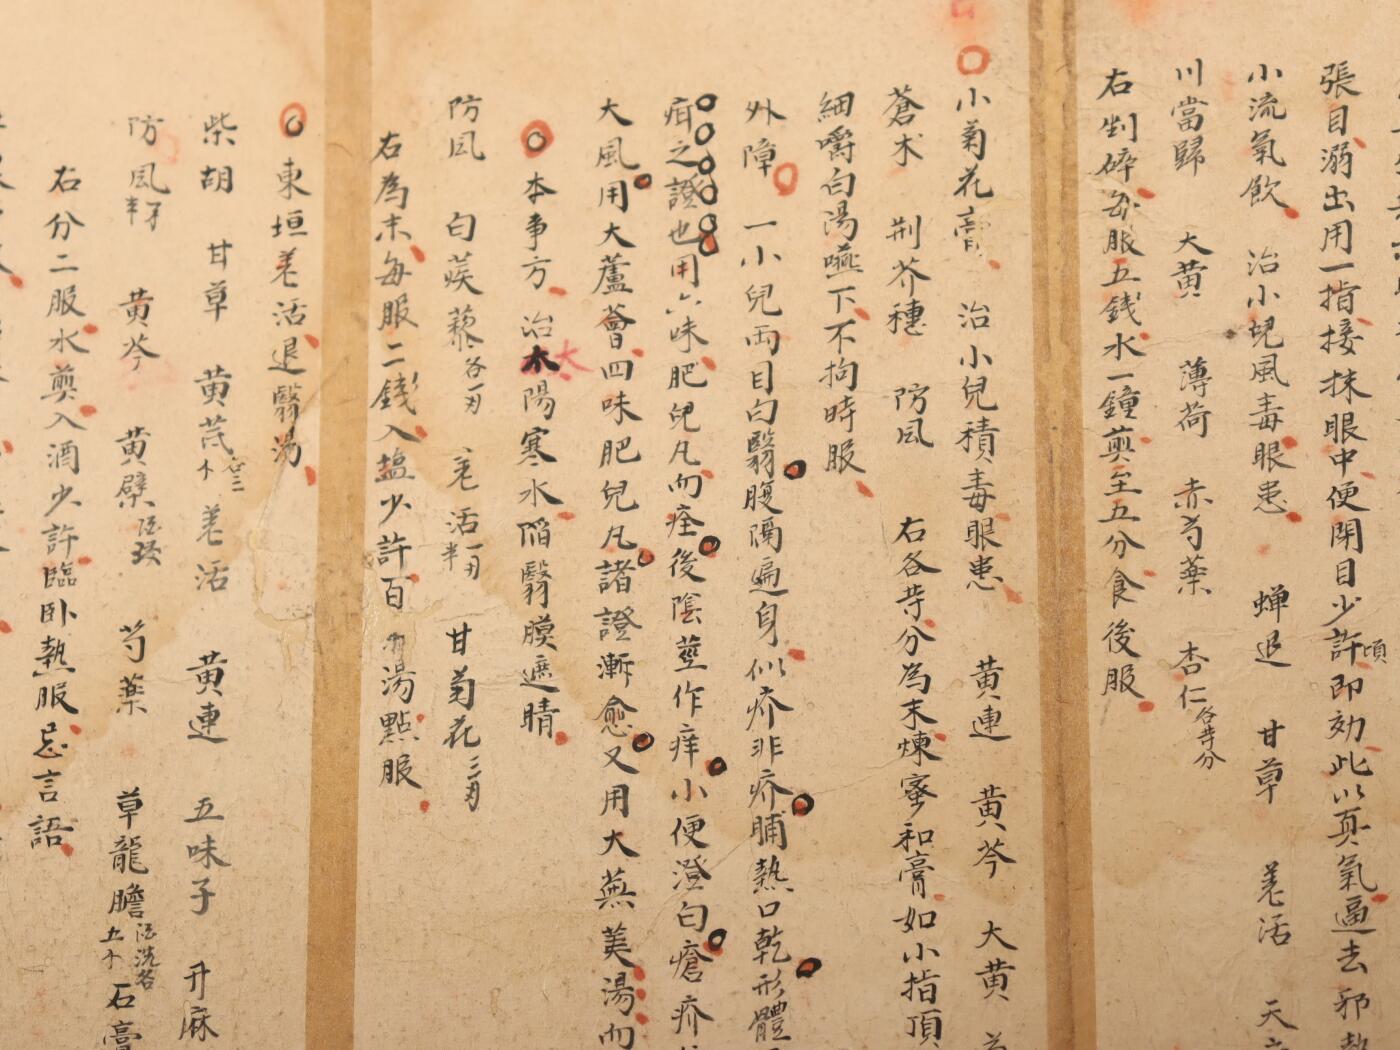 張目溺出用一指接抹眼中便閉目少許頃即効此以真氣逼去邪熱
小流氣飲 治小児風毒眼患 蝉退 甘草 羗活 天
川當歸 大黄 薄荷 赤芍藥 杏仁各等分
右剉碎每服五錢水一鐘煎至五分食後服
小菊花膏 治小兒積毒眼患 黄連 黄芩 大黄
蒼术 荆芥穗 防風 右各等分為末煉蜜和膏如小指頂
細嚼白湯嚥下不拘時服
外障 一小兒兩目白翳腹隔遍身似疥非疥晡熱口乾形體
疳之證也用六味肥兒凡而痊後陰莖作痒小便澄白瘡疥
大風用大蘆薈四味肥兒凡諸證漸愈又用大蕪荑湯而
本事方 治太陽寒水陷翳膜遮睛
防風 白蒺藜各一刃 羗活一刃半 甘菊花三刃
右為末每服二錢入塩少許百湯點服
東垣羗活退翳湯
柴胡 甘草 黄芪各三卜 羗活 黄連 五味子 升麻
防風半 黄芩 黄檗酒 芍藥 草龍膽酒洗各五卜 石膏
右分二服水煎入酒少許臨卧熱服忌言語